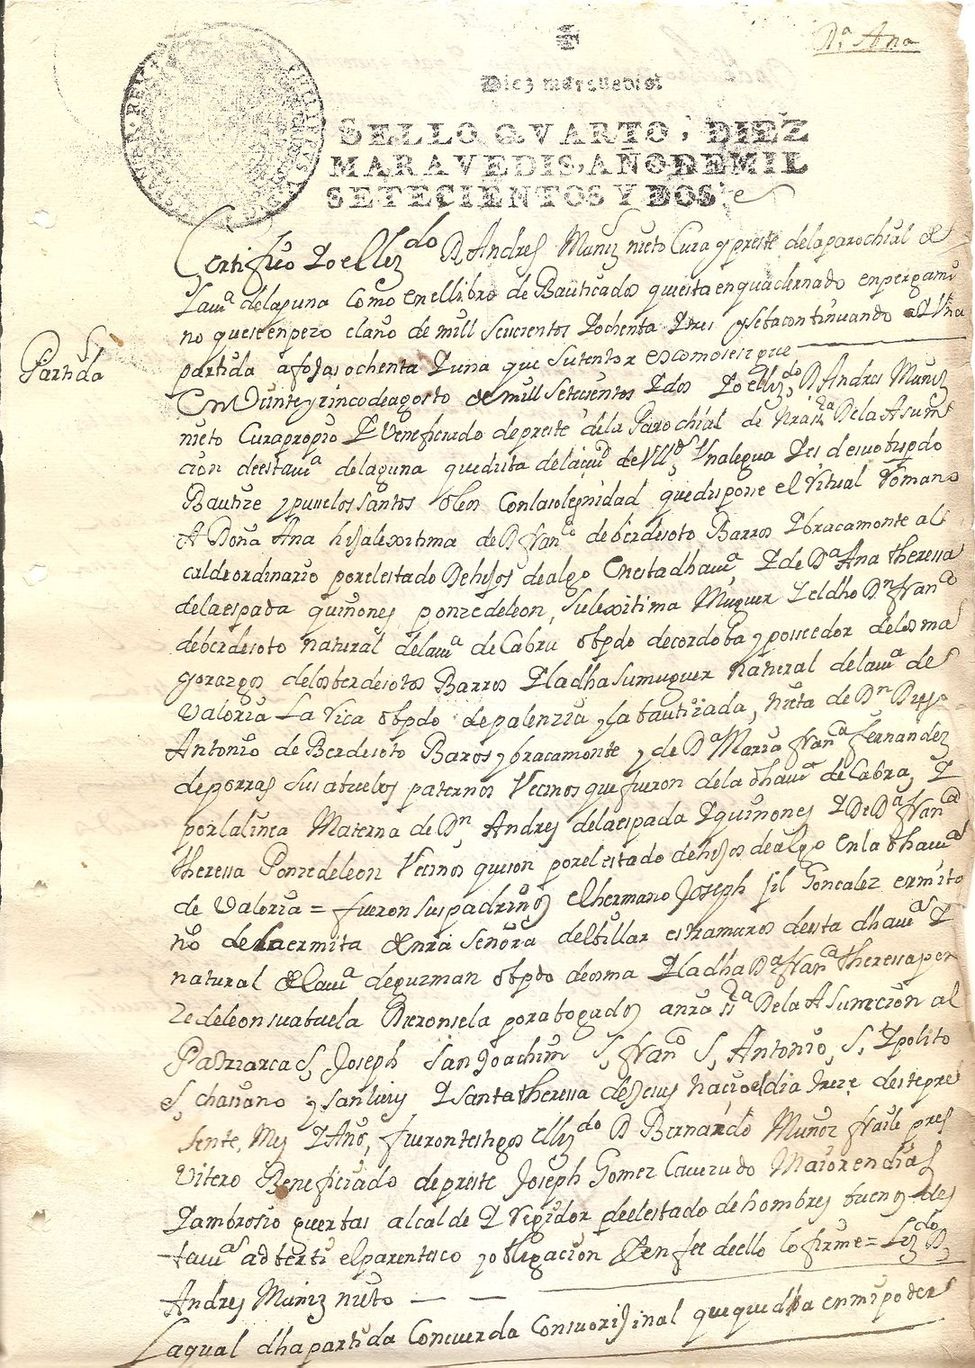 Dª Ana
Diez marauedis
SELLO QVARTO, DIEZ
MARAVEDIS, AÑO DE MIL
SETECIENTOS Y DOS
Certifico Yo el Lizdo D Andres Muñiz nieto Cura y preste de la parochial de
Lavª de laguna como en el libro de Bauticados que esta enquadernado en pergami
no que se enpezo el año de mill seiscientos Y ochenta Y tres y se ba continuando ay Una
Partida
partida a fojas ochenta Y una que su tenor es como se sigue
En Veinte y cinco de agosto de mill setecientos Y dos Yo el lizdo D Andres Muñiz
nieto Cura propio Y Veneficiado de preste de la Parochial de Nrasª De la Asum
cion de esta vª de laguna que dista de la ciud de Vlld Una legua Y es de su obispdo
Bautize y puse los santos oleos con la solegnidad que dispone el Ritual Romano
A Doña Ana hija lexitima de D franco de berdesoto Barros Y bracamonte al
calde ordinario por el estado De hijos de algo en esta dha viª Y de Dª Ana theressa
de la espada quiñones ponze de leon, su lexitima Muguer Y el dho Dn franco
de berdesoto natural de la viª de Cabra obpdo de cordoba y posseedor de los ma
yorazgos de los berdesotos Barros Y la dha su muguer natural de la viª de
Valoria La Rica obpdo de palenzia y la bautizada, nieta de Dn Diego
Antonio de Berdesoto Baros y bracamonte y de Dª Maria franª fernandez
de porras sus abuelos paternos Vecinos que fueron de la dha viª de Cabra, Y
por la linea Materna de Dn Andres de la espada Y quiñones Y De Dª franca
theressa Ponze de leon Vecinos que son por el estado de hijos de algo en la dha viª
de Valoria = fueron sus padrinos el hermano Joseph gil Gonzalez ermita
ño de la ermita de nrá señora del billar estramuros de esta dha viª Y
natural de la viª de guzman obpdo de osma Y la dha Dª franª theressa pon
ze de leon su abuela Dieronsela por abogados a nra sª De la Asumcion al
Patriarca S, Joseph San Joachim S, franco S, Antonio, S, Ypolito
S, y san luis Y santa theressa de Jesus nacio el dia treze de este pre
sente, Mes Y Año, fueron testigos el lizdo D Bernardo Muñoz fraile pres
vitero Beneficiado de preste Joseph Gomez Maior en dias
Y ambrosio guertas alcalde Y Regidor por el estado de hombres buenos de es
ta viª adberti el parentesco y obligacion Y en fee de ello lo firme = Lizdo D,
Andres Muñiz nieto
La qual dha partida Concuerda Con su orijinal que queda en mi poder